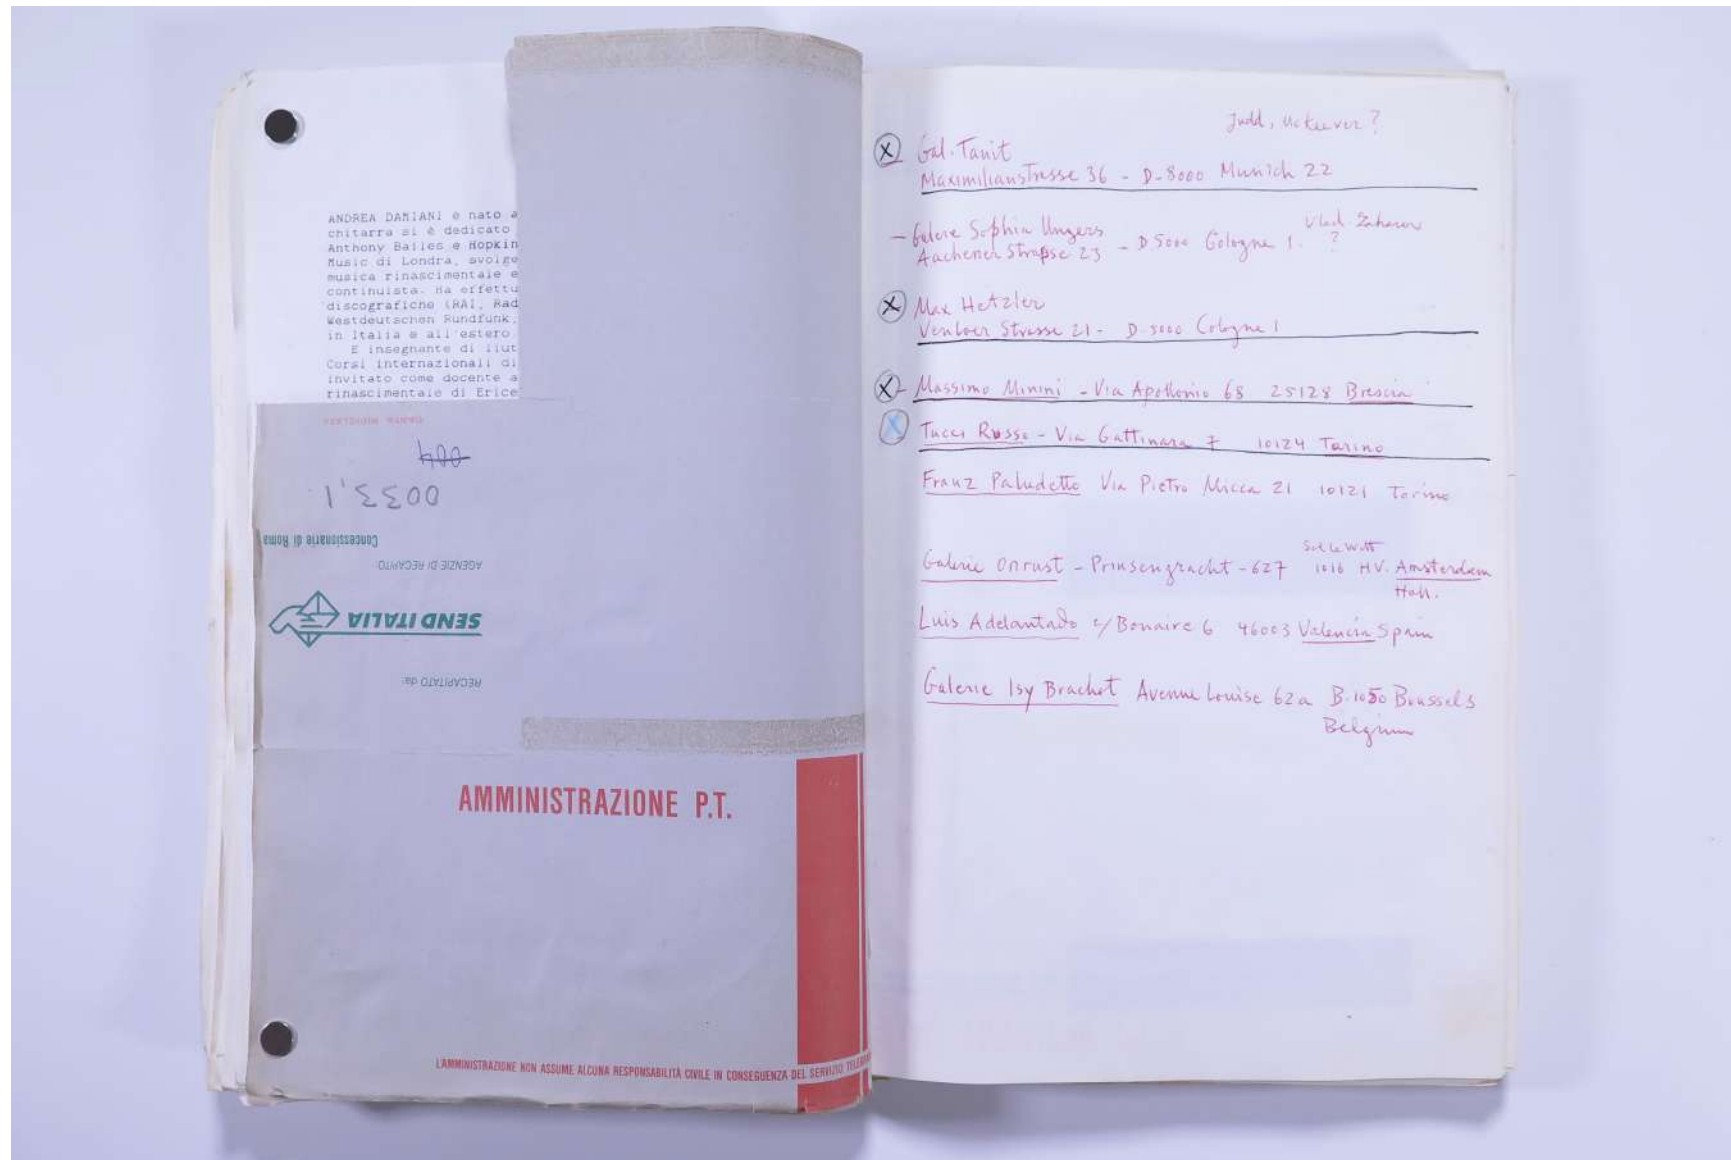 ANDREA DAMIANI è nato a
chitarra si è dedicato
Anthony Bailes e Hopkin
Music di Londra, svolge
musica rinascimentale e
continuista. Ha effettu
discografiche (RAI, Rad
Westdeutschen Rundfunk,
in Italia e all'estero.
E insegnante di liut
Corsi internazionali di
invitato come docente a
rinascimentale di Erice
400
Concessionarie di Roma
AGENZIE DI RECAPITO
SEND ITALIA
RECAPITATO da:
AMMINISTRAZIONE P.T.
L'AMMINISTRAZIONE NON ASSUME ALCUNA RESPONSABILITÀ CIVILE IN CONSEGUENZA DEL SERVIZIO
Judd, McKeever?
X Gal. Tanit
Maximilianstrasse 36 - D-8000 Munich 22
- Galerie Sophia Ungers Vlad. Zaharov
Aachener Strasse 23 - D 5000 Cologne 1. ?
X Max Hetzler
Venloer Strasse 21 - D 5000 Cologne 1
X - Massimo Minini - Via Apollonio 68 25128 Brescia
X Tucci Russo - Via Gattinara 7 10124 Torino
Franz Paludetto Via Pietro Micca 21 10121 Torino
Sol LeWitt
Galerie Onrust - Prinsengracht - 627 1016 HV. Amsterdam
Holl.
Luis Adelantado c/ Bonaire 6 46003 Valencia Spain
Galerie Isy Brachot Avenue Louise 62a B.1050 Brussels
Belgium